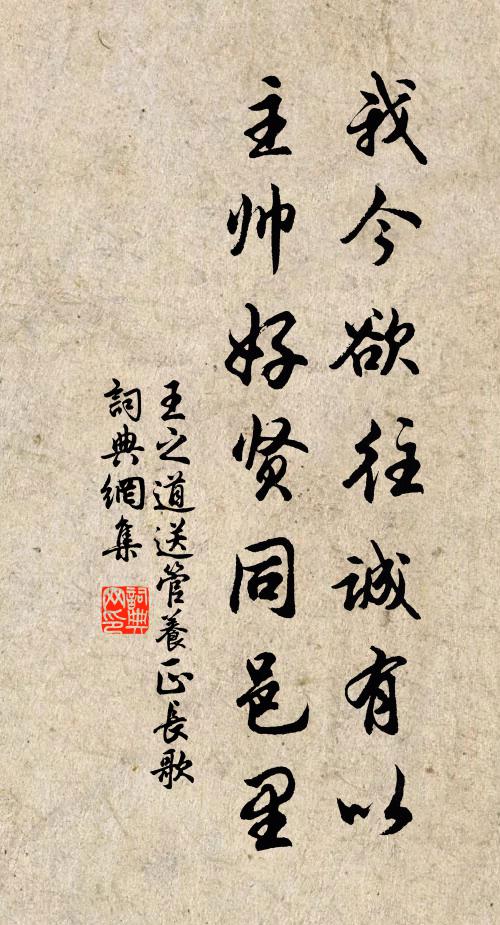 我今欲往诚有以
主帅好贤同邑里
王之道送管養正長歌
詞典網集
詞典网印